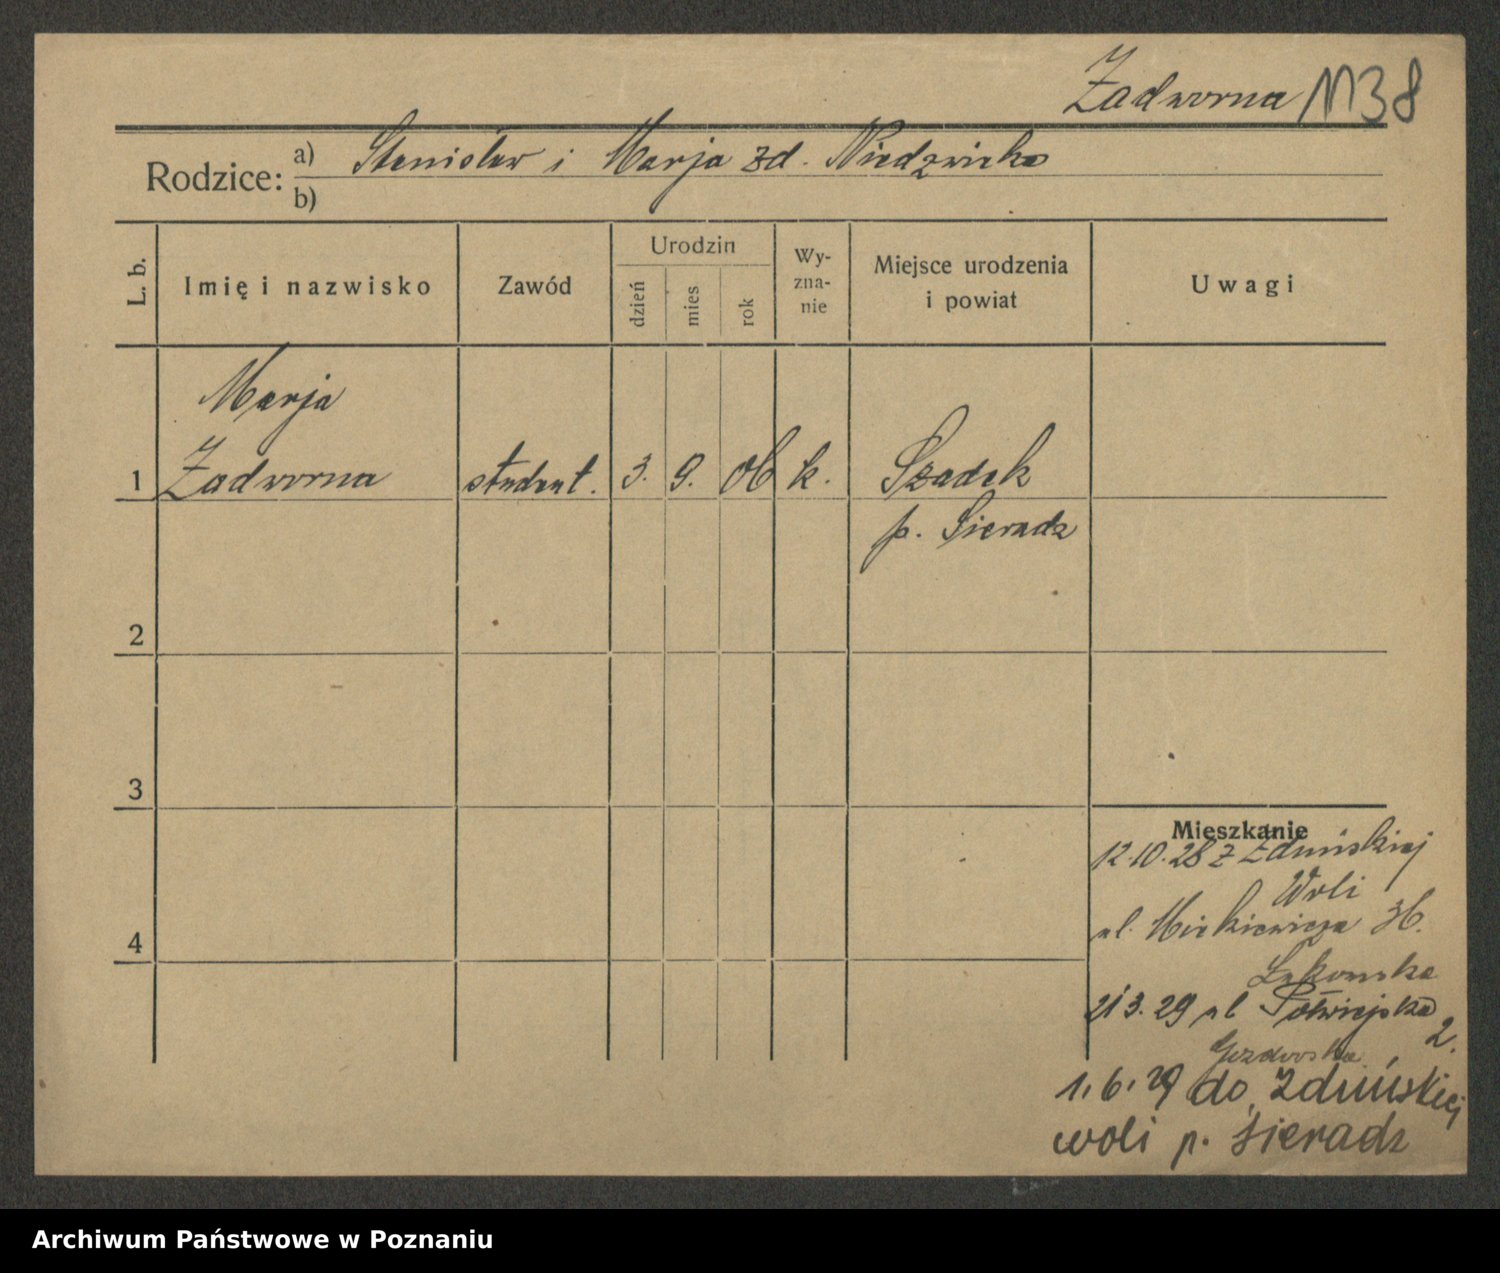 Zadworna 1138
Rodzice: a) Stanisław i Marja zd. Niedzwicka
b)
L. b.
Imię i nazwisko
Zawód
Urodzin
dzień
mies
rok
Wy-
zna-
nie
Miejsce urodzenia
i powiat
Uwagi
Marja
1 Zadworna student. 3. 9. 06 k. Szadek
p. Sieradz
2
3
4
Mieszkanie
12.10.28 z Zduńskiej
Woli
ul. Mickiewicza 36.
21 3. 29 ul Półwiejska
2.
1.6.29 do Zduńskiej
woli p. Sieradz
Archiwum Państwowe w Poznaniu